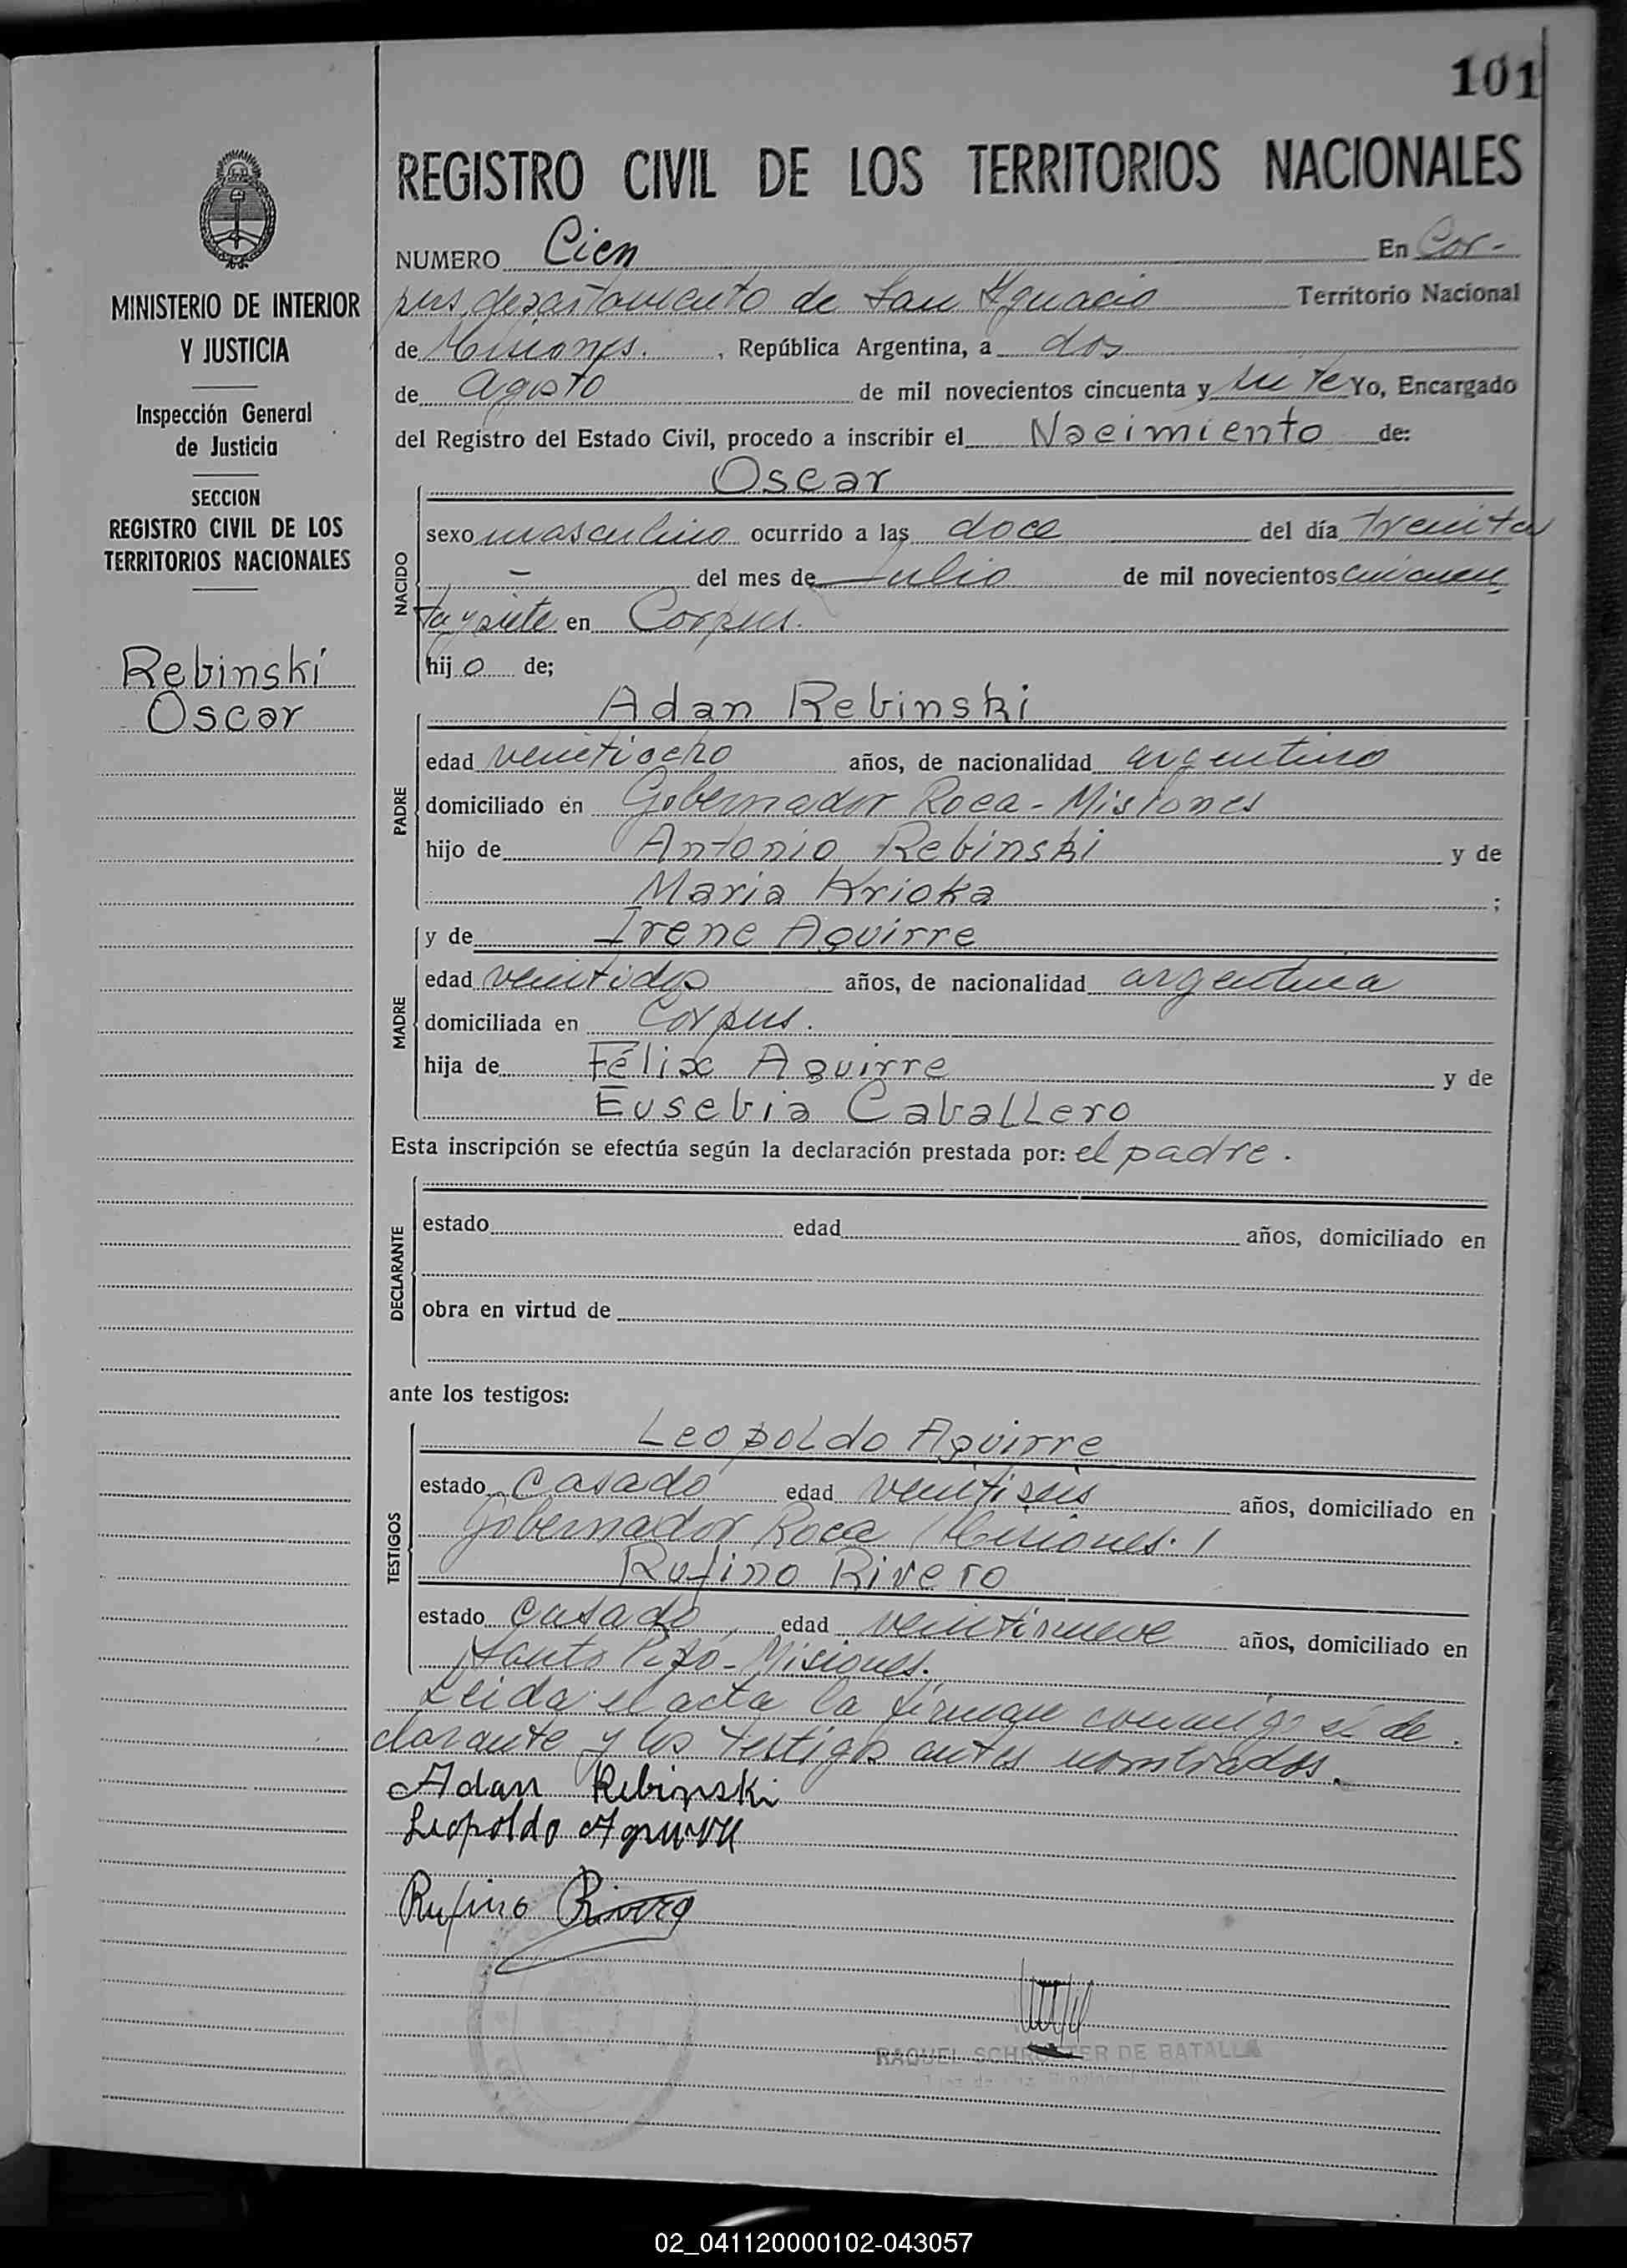 101
REGISTRO CIVIL DE LOS TERRITORIOS NACIONALES
NUMERO Cien En Cor-
pus, departamento de San Ygnacio Territorio Nacional
de Misiones. , República Argentina, a dos
de agosto de mil novecientos cincuenta y siete Yo, Encargado
del Registro del Estado Civil, procedo a inscribir el Nacimiento de:
MINISTERIO DE INTERIOR
Y JUSTICIA
Inspección General
de Justicia
SECCION
REGISTRO CIVIL DE LOS
TERRITORIOS NACIONALES
Rebinski
Oscar
NACIDO
Oscar
sexo masculino ocurrido a las doce del día treinta
- del mes de Julio de mil novecientos cincuen
ta y siete en Corpus.
hijo de;
PADRE
Adan Rebinski
edad veintiocho años, de nacionalidad argentino
domiciliado en Gobernador Roca - Misiones
hijo de Antonio Rebinski y de
Maria Krioka ;
MADRE
y de Irene Aguirre
edad veintidos años, de nacionalidad argentina
domiciliada en Corpus.
hija de Félix Aguirre y de
Eusebia Caballero
Esta inscripción se efectúa según la declaración prestada por: el padre.
DECLARANTE
estado edad años, domiciliado en
obra en virtud de
ante los testigos:
TESTIGOS
Leopoldo Aguirre
estado casado edad veintiseis años, domiciliado en
Gobernador Roca /Misiones./
Rufino Rivero
estado casado, edad veintinueve años, domiciliado en
Santo Pipó - Misiones.
Leida el acta la firman conmigo el de
clarante y los testigos antes nombrados.
Adan Rebinski
Leopoldo Aguirre
Rufino Rivero
RAQUEL SCHROETER DE BATALLA
02_041120000102-043057